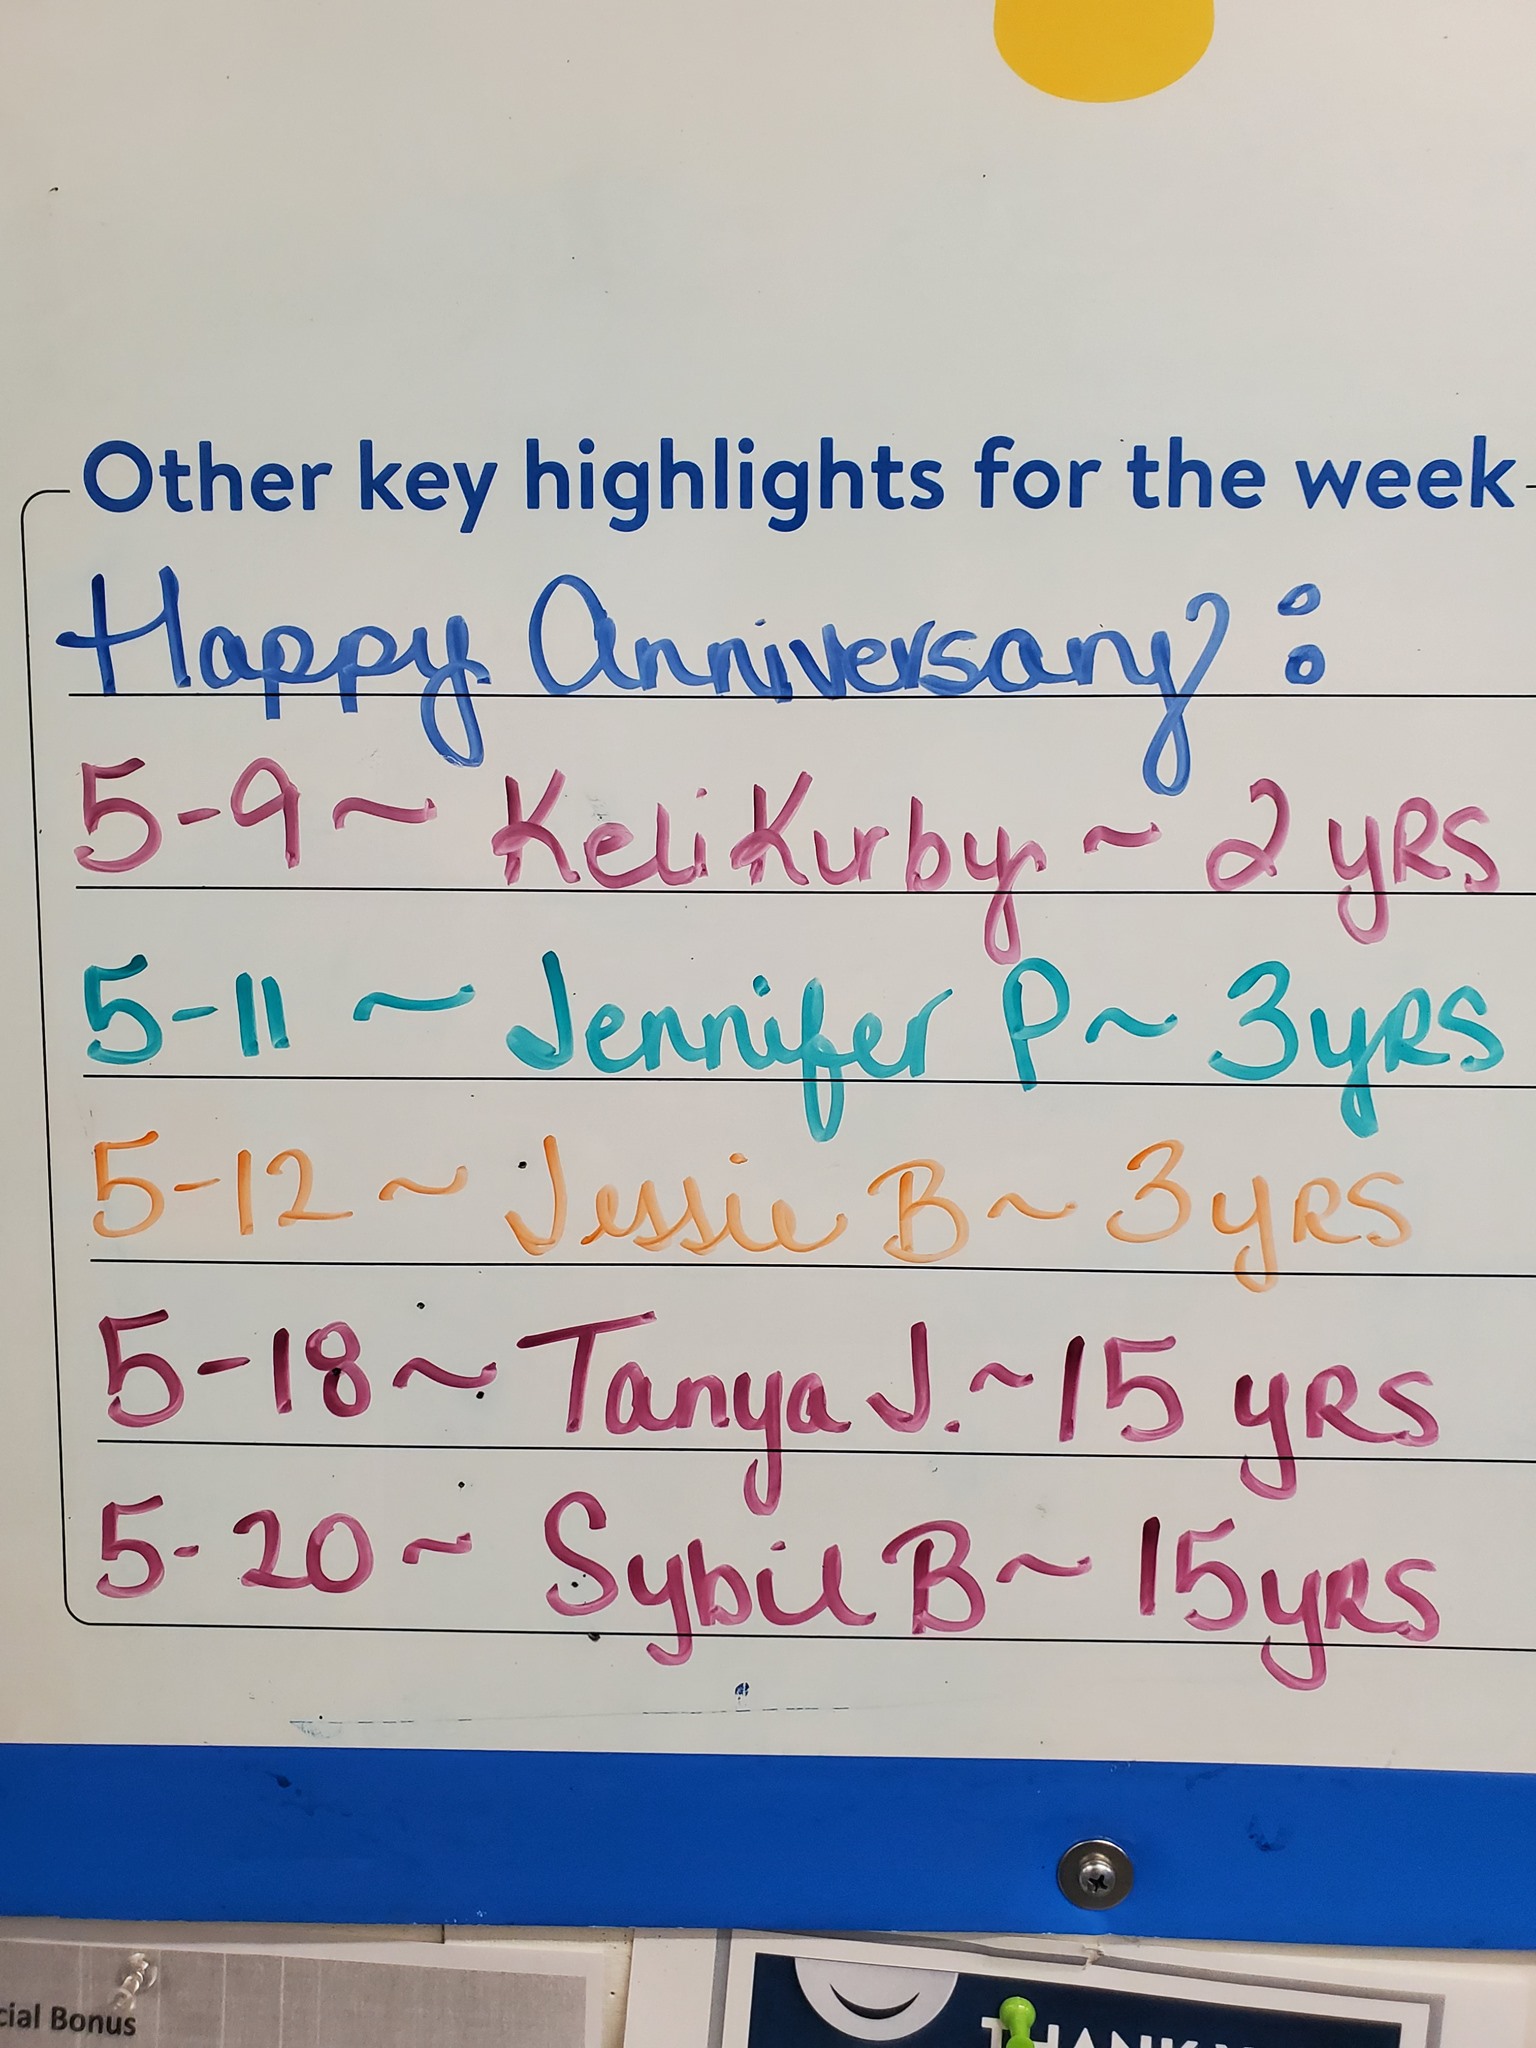 Other key highlights for the week
Happy Anniversary:
5-9 ~ Keli Kurby ~ 2 yRS
5-11 ~ Jennifer P ~ 3 yRS
5-12 ~ Jessie B ~ 3 yRS
5-18 ~ Tanya J. ~ 15 yRS
5-20 ~ Sybil B ~ 15 yRS
cial Bonus
THANK